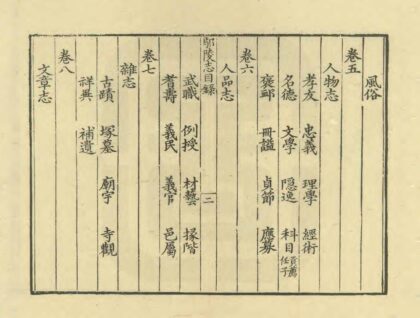 風俗
卷五
人物志
孝友 忠義 理學 經術
名德 文學 隱逸 科目 貢薦 任子
褒卹 冊謚 貞節 應募
卷六
人品志
鄢陵志目録 二
武職 例授 材藝 掾階
耆壽 義民 義官 邑屬
卷七
雜志
古蹟 塚墓 廟宇 寺觀
祥異 補遺
卷八
文章志